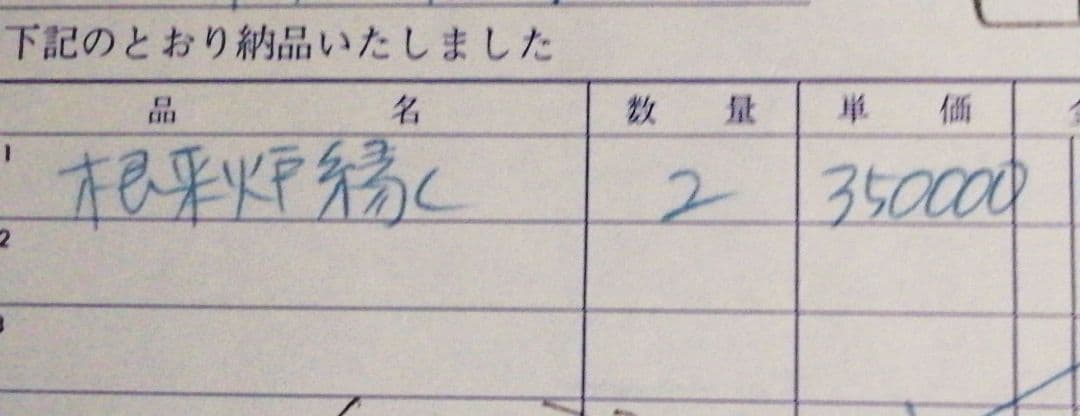 下記のとおり納品いたしました
品名 数量 単価
1 根来炉縁く 2 350000
2
3